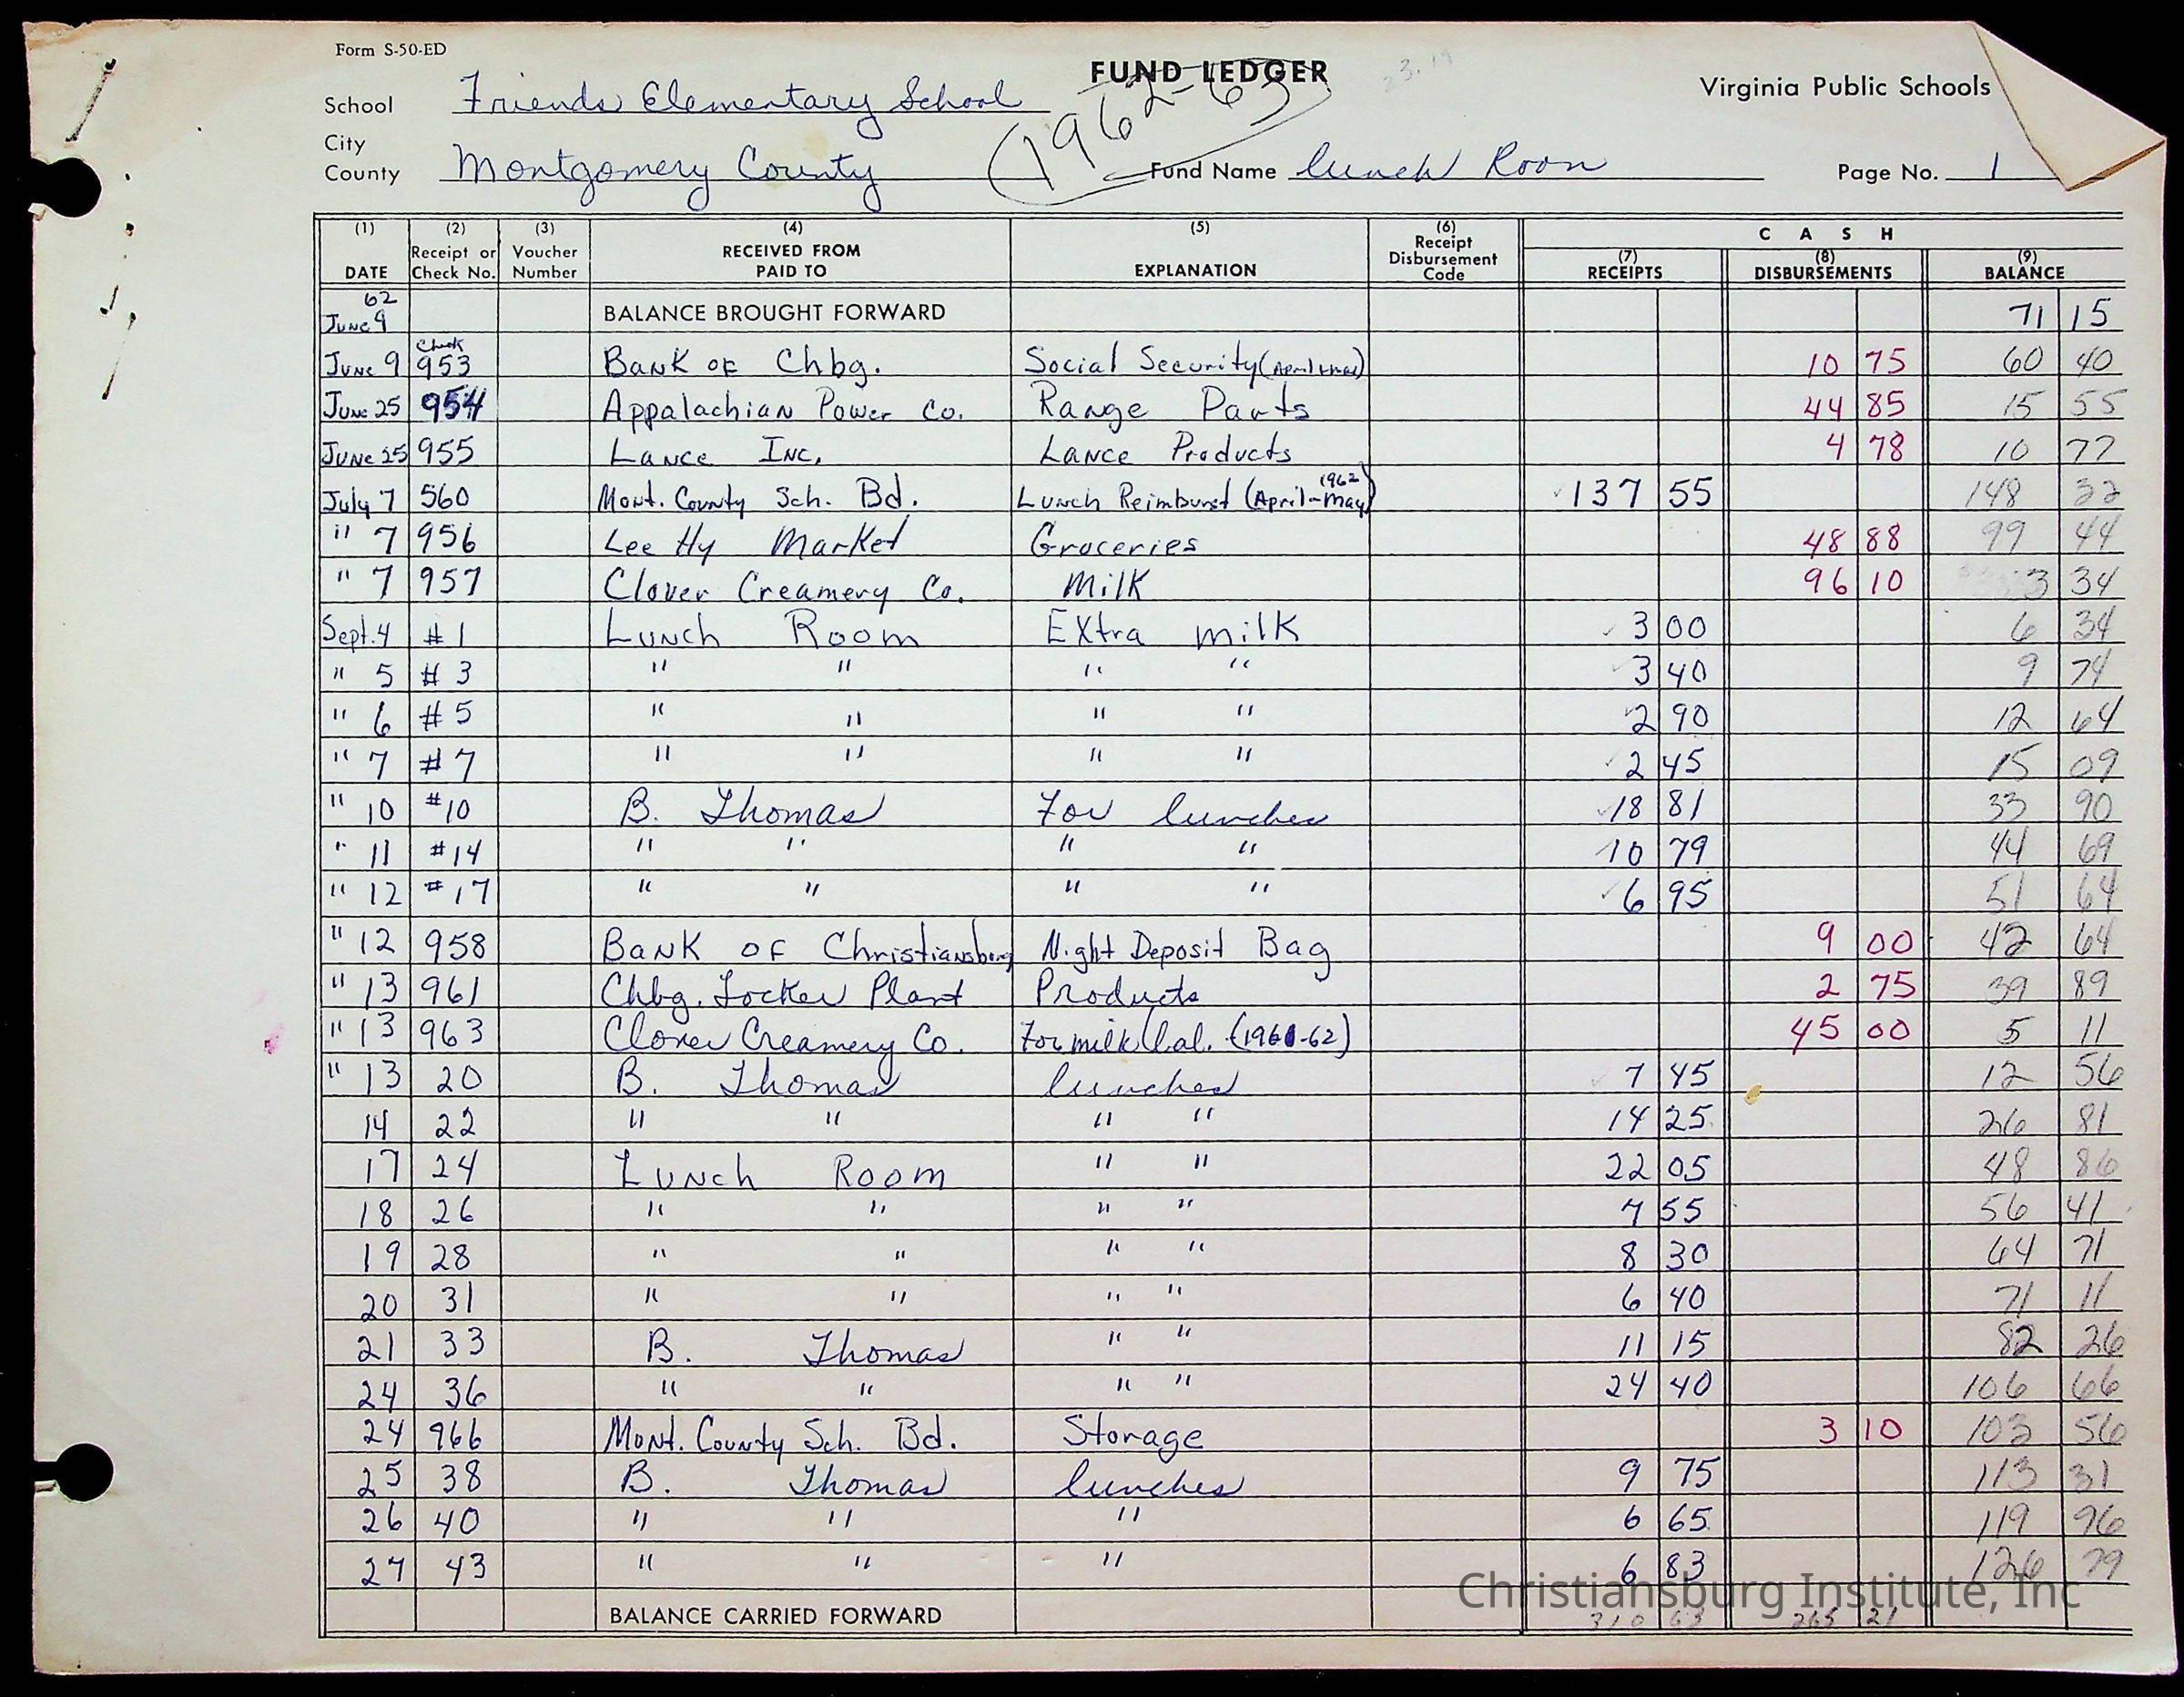 Form S-50-ED
FUND LEDGER
Virginia Public Schools
School Friends Elementary School
(1962-63)
City
County Montgomery County
Fund Name Lunch Room
Page No. 1
(1) DATE (2) Receipt or Check No. (3) Voucher Number (4) RECEIVED FROM PAID TO (5) EXPLANATION (6) Receipt Disbursement Code CASH (7) RECEIPTS (8) DISBURSEMENTS (9) BALANCE
62 June 9 BALANCE BROUGHT FORWARD 71 15
June 9 Check 953 Bank of Chbg. Social Security (April & May) 10 75 60 40
June 25 954 Appalachian Power Co. Range Parts 44 85 15 55
June 25 955 Lance Inc. Lance Products 4 78 10 77
July 7 560 Mont. County Sch. Bd. Lunch Reimburst (April-May 1962) 137 55 148 32
" 7 956 Lee Hy Market Groceries 48 88 99 44
" 7 957 Clover Creamery Co. Milk 96 10 3 34
Sept. 4 #1 Lunch Room Extra milk 3 00 6 34
" 5 #3 " " " " 3 40 9 74
" 6 #5 " " " " 2 90 12 64
" 7 #7 " " " " 2 45 15 09
" 10 #10 B. Thomas For lunches 18 81 33 90
" 11 #14 " " " " 10 79 44 69
" 12 #17 " " " " 6 95 51 64
" 12 958 Bank of Christiansburg Night Deposit Bag 9 00 42 64
" 13 961 Chbg. Locker Plant Products 2 75 39 89
" 13 963 Clover Creamery Co. For milk bal. (1961-62) 45 00 5 11
" 13 20 B. Thomas lunches 7 45 12 56
14 22 " " " " 14 25 26 81
17 24 Lunch Room " " 22 05 48 86
18 26 " " " " 7 55 56 41
19 28 " " " " 8 30 64 71
20 31 " " " " 6 40 71 11
21 33 B. Thomas " " 11 15 82 26
24 36 " " " " 24 40 106 66
24 966 Mont. County Sch. Bd. Storage 3 10 103 56
25 38 B. Thomas lunches 9 75 113 31
26 40 " " " 6 65 119 96
27 43 " " " 6 83 126 79
BALANCE CARRIED FORWARD 265 21
Christiansburg Institute, Inc